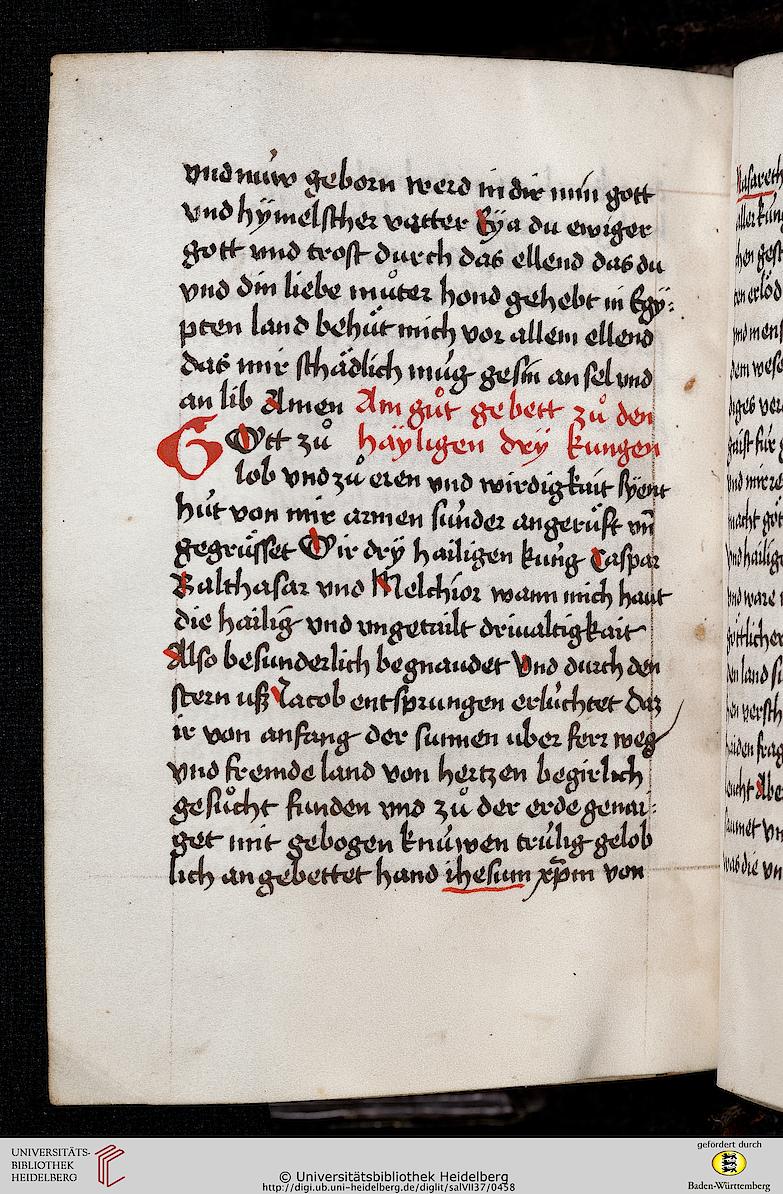 vnd nuͤw geborn werd in dir min gott
vnd hÿmelscher vatter Eÿa du ewiger
gott vnd trost durch das ellend das du
vnd din liebe muͦter hond gehebt in Egÿ:
pten land behuͤt mich vor allem ellend
das mir schädlich mug gesin an sel vnd
an lib Amen Am guͦt gebett zuͦ den
GOtt zuͦ häyligen drÿ kungen
lob vnd zuͦ eren vnd wirdigkait sÿent
hút von mir armen súnder angeruͤft vn̄
gegruͤsset Oir drÿ hailigen kúng Caspar
Balthasar vnd Melchior wann mich haut
die hailig vnd vngetailt driualtigkait
Also besunderlich begnaudet Vnd durch den
stern uß Iacob entsprungen erlúchtet daz
ir von anfang der sunnen uber ferr weg
vnd fremde land von hertzen begirlich
gesuͦcht funden vnd zuͦ der erde genai:
get mit gebogen knúwen trúlig gelob
lich angebettet hand ihesum xp̄m von
Nasareth
aller kúng
den land
UNIVERSITÄTS-
BIBLIOTHEK
HEIDELBERG
© Universitätsbibliothek Heidelberg
http://digi.ub.uni-heidelberg.de/diglit/salVII37/0458
gefördert durch
Baden-Württemberg